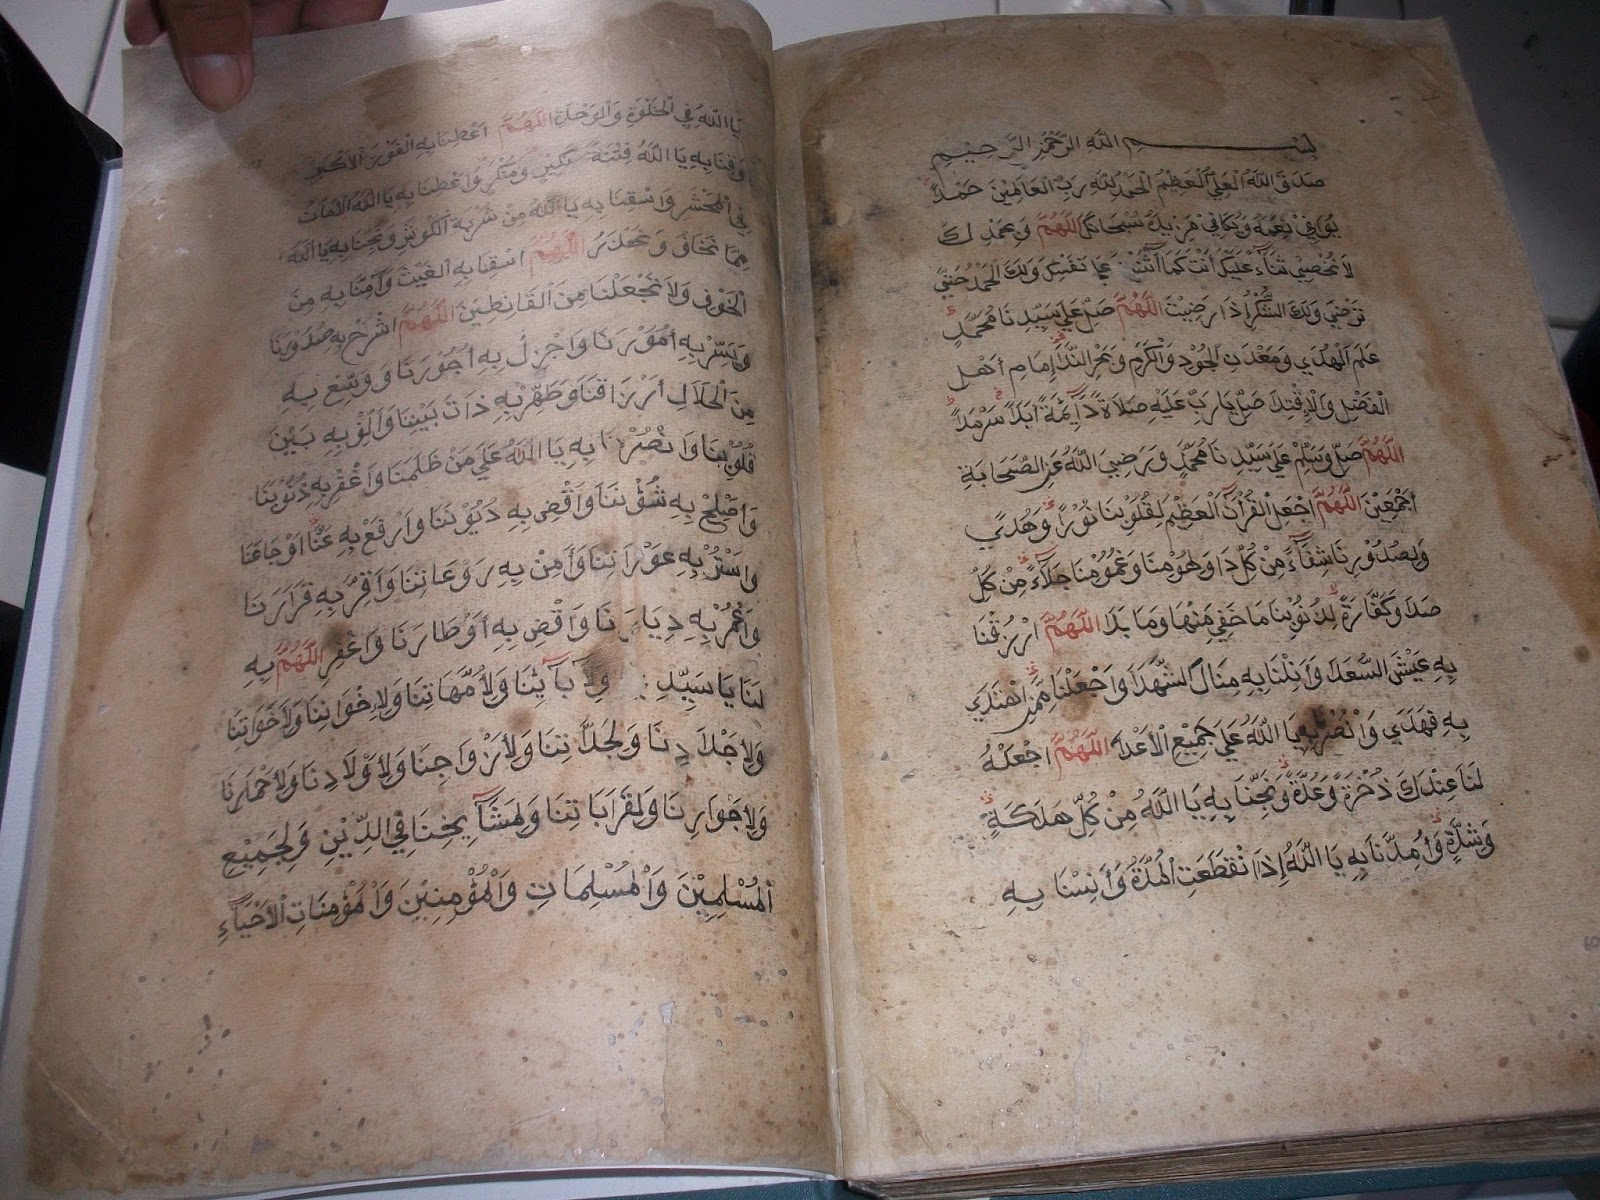 بِسْمِ اللَّهِ الرَّحْمٰنِ الرَّحِيْمِ
صَدَقَ اللَّهُ الْعَلِيُّ الْعَظِيْمُ الْحَمْدُ لِلَّهِ رَبِّ الْعَالَمِيْنَ حَمْدًا
يُوَافِيْ نِعَمَهُ وَيُكَافِيْ مَزِيْدَهُ سُبْحَانَكَ اللَّهُمَّ وَبِحَمْدِكَ
لَا نُحْصِيْ ثَنَاءً عَلَيْكَ أَنْتَ كَمَا أَثْنَيْتَ عَلَى نَفْسِكَ وَلَكَ الْحَمْدُ حَتَّى
تَرْضَى وَلَكَ الشُّكْرُ إِذَا رَضِيْتَ اللَّهُمَّ صَلِّ عَلَى سَيِّدِنَا مُحَمَّدٍ
عَلَمِ الْهُدَى وَمَعْدَنِ الْجُوْدِ وَالْكَرَمِ وَبَحْرِ النَّدَا إِمَامِ أَهْلِ
الْفَضْلِ وَالْاِقْتِدَ صَلِّ يَا رَبِّ عَلَيْهِ صَلَاةً دَائِمَةً أَبَدًا سَرْمَدًا
اللَّهُمَّ صَلِّ وَسَلِّمْ عَلَى سَيِّدِنَا مُحَمَّدٍ وَرَضِيَ اللَّهُ عَنِ الصَّحَابَةِ
أَجْمَعِيْنَ اللَّهُمَّ اجْعَلِ الْقُرْآنَ الْعَظِيْمَ لِقُلُوْبِنَا نُوْرًا وَهُدًى
وَلِصُدُوْرِنَا شِفَاءً مِنْ كُلِّ دَا وَلِهُمُوْمِنَا وَغُمُوْمِنَا جَلَاءً مِنْ كُلِّ
صَدَ وَكَفَّارَةً لِذُنُوْبِنَا مَا خَفِيَ مِنْهَا وَمَا بَدَا اللَّهُمَّ ارْزُقْنَا
بِهِ عَيْشَ السُّعَدَ وَأَنِلْنَا بِهِ مَنَالَ الشُّهَدَا وَاجْعَلْنَا مِمَّنِ اهْتَدَى
بِهِ فَهَدَى وَانْصُرْ بِهِ يَا اللَّهُ عَلَى جَمِيْعِ الْأَعْدَا اللَّهُمَّ اجْعَلْهُ
لَنَا عِنْدَكَ ذُخْرَةً وَعُدَّةً وَنَجِّنَا بِهِ يَا اللَّهُ مِنْ كُلِّ هَلَكَةٍ
وَشِدَّةٍ وَأَمِدَّنَا بِهِ يَا اللَّهُ إِذَا انْقَطَعَتِ الْمُدَّةُ وَأَنِسْنَا بِهِ
يَا اللَّهُ فِي الْخَلْوَةِ وَالْوَحْدَةِ اللَّهُمَّ أَعْطِنَا بِهِ الْفَوْزَ الْأَكْبَرَ
وَقِنَا بِهِ يَا اللَّهُ فِتْنَةَ نَكِيْرٍ وَمُنْكَرٍ وَأَعْطِنَا بِهِ يَا اللَّهُ الْأَمَانَ
فِي الْمَحْشَرِ وَاسْقِنَا بِهِ يَا اللَّهُ مِنْ شَرْبَةِ الْكَوْثَرِ وَنَجِّنَا بِهِ يَا اللَّهُ
مِمَّا نَخَافُ وَنَحْذَرُ اللَّهُمَّ اسْقِنَا بِهِ الْغَيْثَ وَآمِنَّا بِهِ مِنَ
الْخَوْفِ وَلَا تَجْعَلْنَا مِنَ الْقَانِطِيْنَ اللَّهُمَّ اشْرَحْ بِهِ صُدُوْرَنَا
وَيَسِّرْ بِهِ أُمُوْرَنَا وَاجْزِلْ بِهِ أُجُوْرَنَا وَوَسِّعْ بِهِ
مِنَ الْحَلَالِ أَرْزَاقَنَا وَطَهِّرْ بِهِ ذَاتَ بَيْنِنَا وَأَلِّفْ بِهِ بَيْنَ
قُلُوْبِنَا وَانْصُرْنَا بِهِ يَا اللَّهُ عَلَى مَنْ ظَلَمَنَا وَاغْفِرْ بِهِ ذُنُوْبَنَا
وَأَصْلِحْ بِهِ شُؤُنَنَا وَاقْضِ بِهِ دُيُوْنَنَا وَارْفَعْ بِهِ عَنَّا أَوْجَاعَنَا
وَاسْتُرْ بِهِ عَوْرَاتِنَا وَأَمِنْ بِهِ رَوْعَاتِنَا وَأَقِرَّ بِهِ قَرَارَنَا
وَاعْمُرْ بِهِ دِيَارَنَا وَاقْضِ بِهِ أَوْطَارَنَا وَاغْفِرِ اللَّهُمَّ بِهِ
لَنَا يَا سَيِّدِ وَلِآبَائِنَا وَلِأُمَّهَاتِنَا وَلِإِخْوَانِنَا وَلِأَخَوَاتِنَا
وَلِأَجْدَادِنَا وَلِجَدَّاتِنَا وَلِأَزْوَاجِنَا وَلِأَوْلَادِنَا وَلِأَحْمَارِنَا
وَلِأَجْوَارِنَا وَلِقَرَابَاتِنَا وَلِمَشَايِخِنَا فِي الدِّيْنِ وَلِجَمِيْعِ
الْمُسْلِمِيْنَ وَالْمُسْلِمَاتِ وَالْمُؤْمِنِيْنَ وَالْمُؤْمِنَاتِ الْأَحْيَاءِ